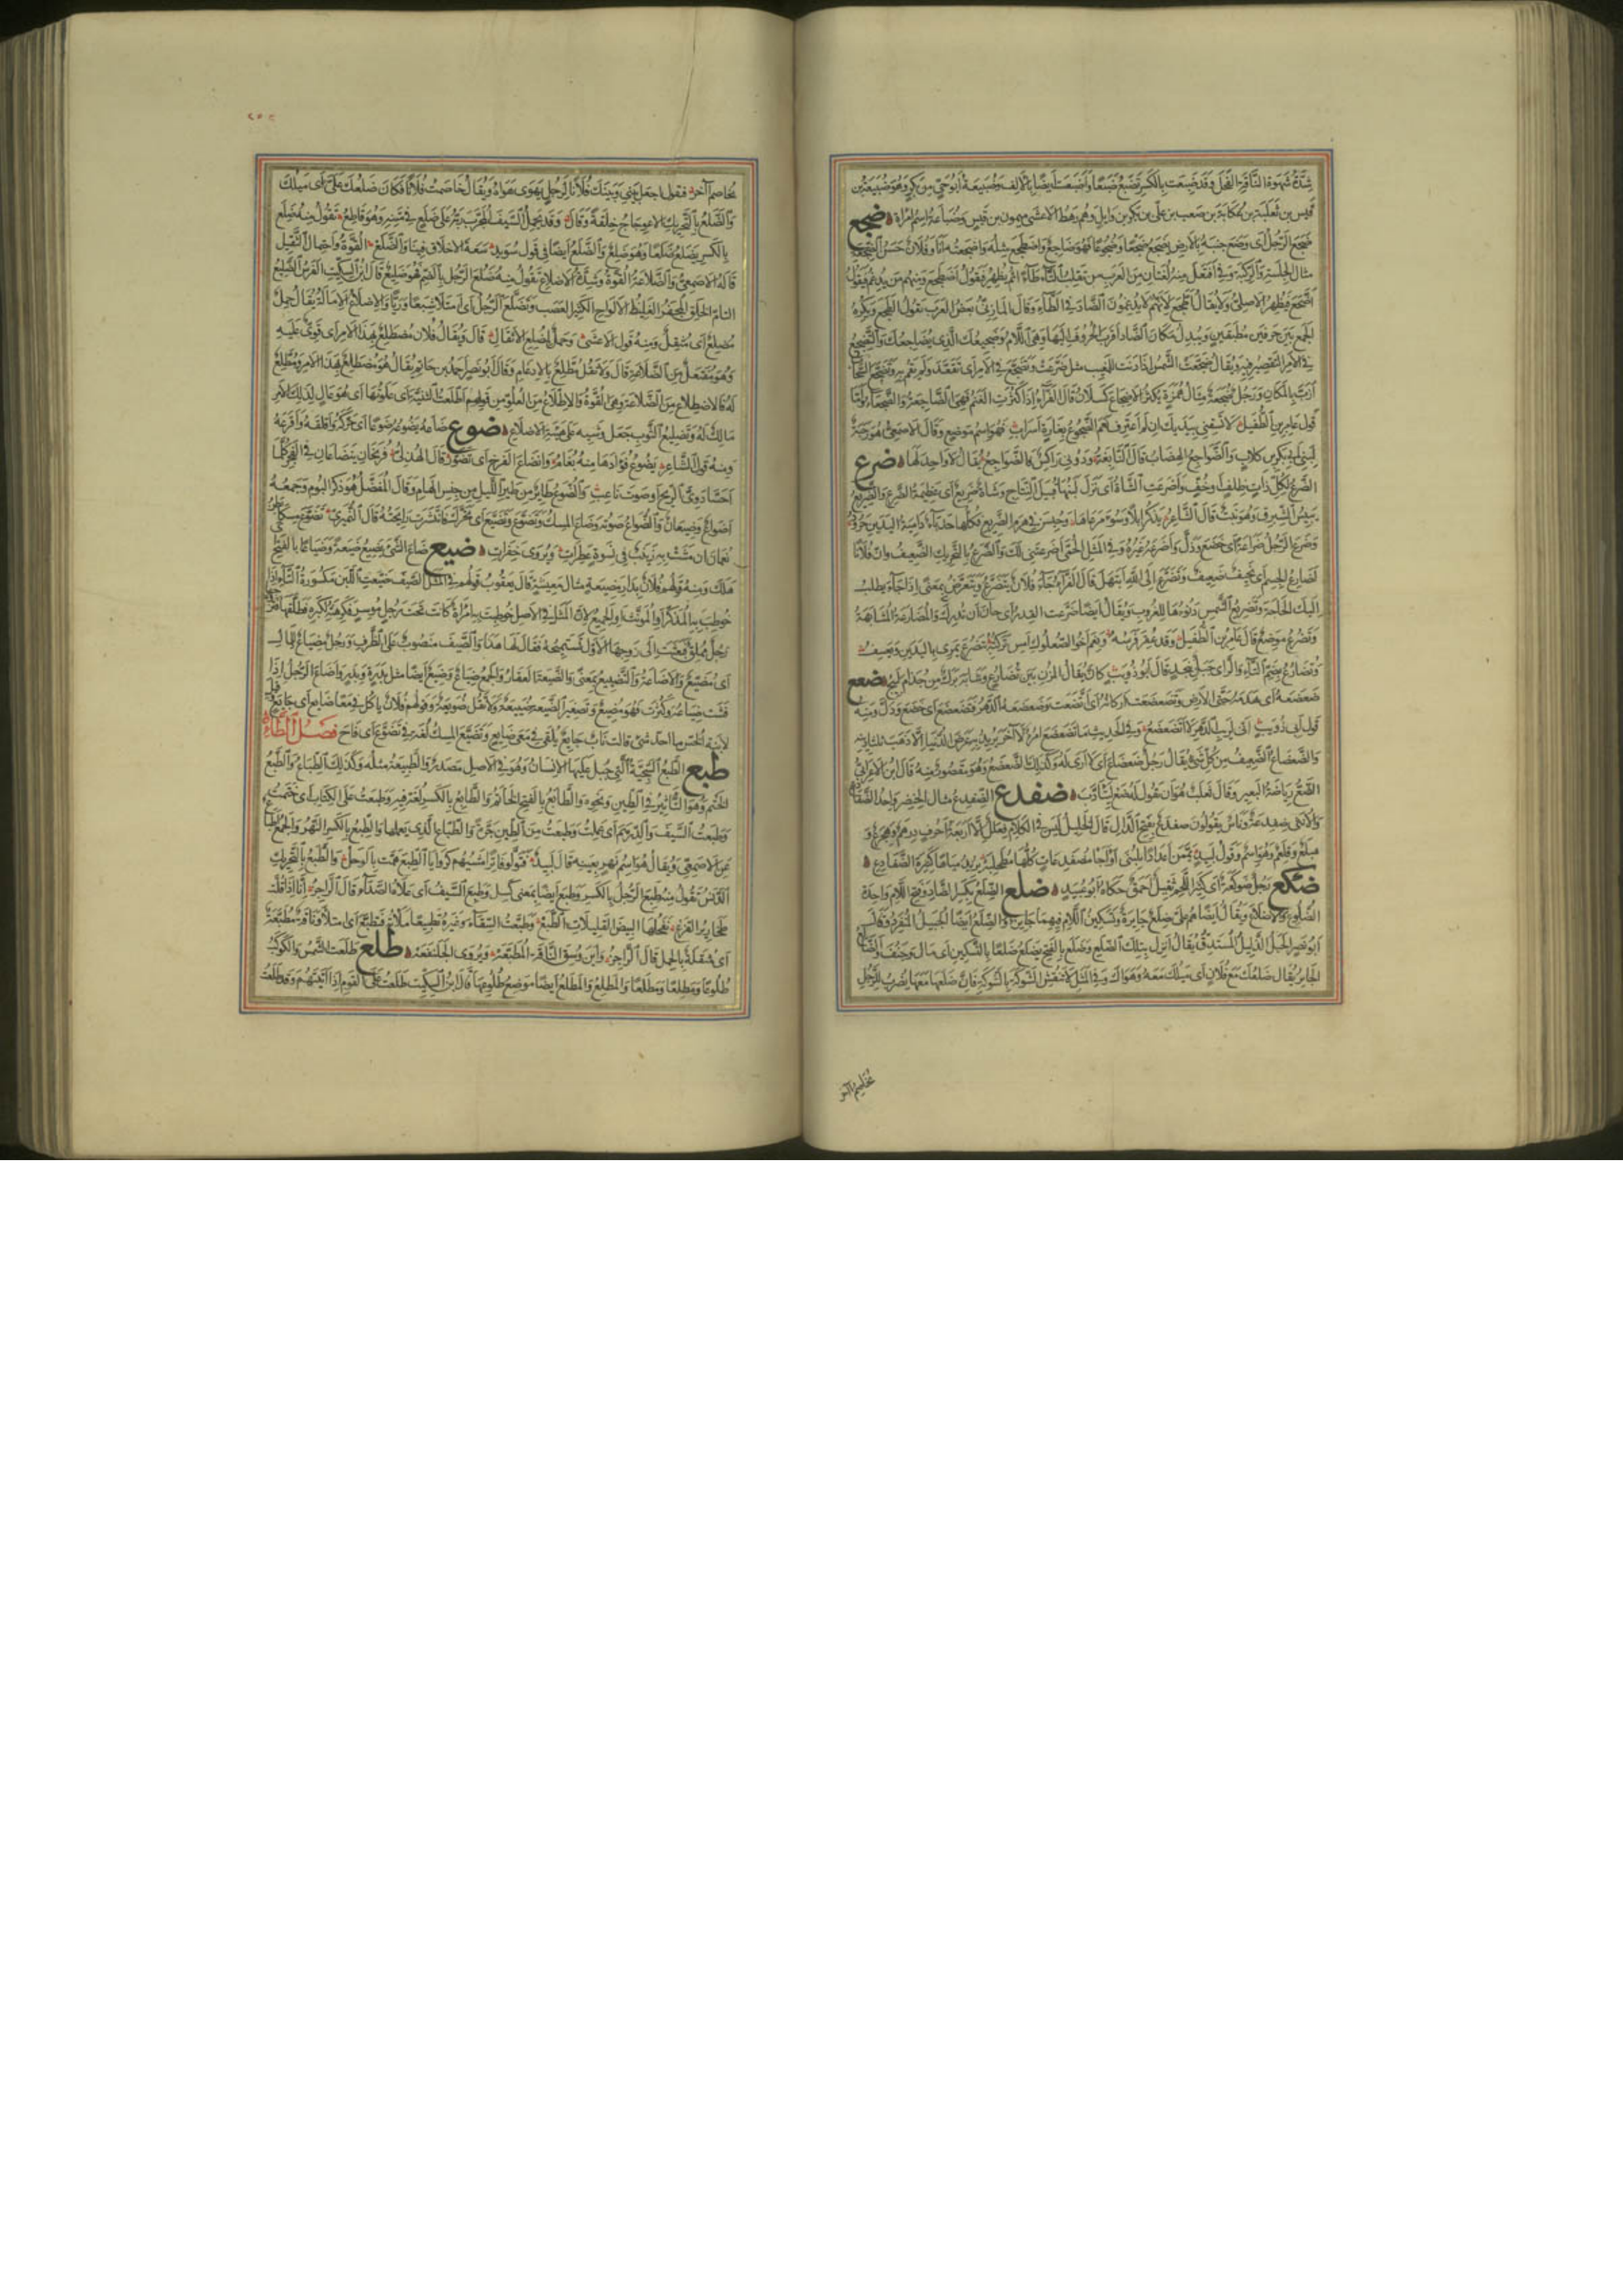 شدة شهوة الناقة الفحل وقد ضبعت بالكسر تضبع ضبعا وأضبعت أيضا بالألف وضبيعة أبو حي من بكر وهو ضبيعة بن
قيس بن ثعلبة بن عكابة بن صعب بن علي بن بكر بن وايل وهم رهط الاعشى ميمون بن قيس وضباعة اسم امراة ضجع
ضجع الرجل اى وضع جنبه بالارض يضجع ضجعا وضجوعا فهو ضاجع واضطجع مثله واضجعته انا وفلان حسن الضجعة
مثال الجلسة والركبة وفي افتعل منه لغتان من العرب من تقلب التاء طاء ثم يظهر فيقول اضطجع ومنهم من يدغم فيقول
اضجع فيظهر الاصلي ولا يقال اطجع لانهم لا يدغمون الضاد في الطاء وقال المازني بعض العرب تقول الطجع ويكره
الجمع بين حرفين مطبقين ويبدل مكان الضاد اقرب الحروف اليها وهي اللام وضجيعك الذي يضاجعك والتضجيع
في الامر التقصير فيه ويقال ضجعت الشمس اذا دنت للمغيب مثل ضرعت وتضجع في الامر اى تقعد ولم يقم به وتضجع السحاب
ارب بالمكان ورجل ضجعة مثال همزة يكثر الاضجاع كسلان قال الفراء إذا كثرت الغنم فهي الضاجعة والضجعاء
قول عامر بن الطفيل لا تسقني بيديك ان لم اغترف نعم الضجوع بغارة اسراب فهو اسم موضع وقال الاصمعي هو رحبة
لبني ابي بكر بن كلاب والضواجع الهضاب قال النابغة ودوني راكس فالضواجع يقال لا واحد لها ضرع
الضرع لكل ذات ظلف او خف واضرعت الشاة اى نزل لبنها قبيل النتاج وشاة ضريع اى عظيمة الضرع والضريع
يبيس الشبرق وهو نبت قال الشاعر يذكر ابلا وسوء مرعاها وحبسن في هزم الضريع فكلها حدباء دامية اليدين حرود
وضرع الرجل ضراعة اى خضع وذل واضرعه غيره وفي المثل الحمى اضرعتني لك والضرع بالتحريك الضعيف وان فلانا
لضارع الجسم اى نحيف ضعيف وتضرع الى الله ابتهل قال الفراء جاء فلان يتضرع ويتعرض بمعنى اذا جاء يطلب
اليك الحاجة وتضريع الشمس دنوها للغروب ويقال ايضا ضرعت القدر اى حان ان تدرك والمضارعة المشابهة
وتضرع موضع قال عامر بن الطفيل وقد عقر فرسه ونعم اخو الصعلوك امس تركته بتضرع يمرى باليدين ويعسف
وتضارع بضم التاء والراء جبل بنجد قال ابو ذويب كان ثقال المزن بين تضارع وشابة برك من جذام لبيج ضعع
ضعضعه اى هدمه حتى الارض وتضعضعت اركانه اى اتضعت وضعضعه الدهر فتضعضع اى خضع وذل ومنه
قول ابي ذويب اني لريب الدهر لا اتضعضع وفي الحديث ما تضعضع امرؤ لآخر يريد به عرض الدنيا الا ذهب ثلثا دينه
والضعضاع الضعيف من كل شي يقال رجل ضعضاع اى لا راى له وكذلك الضعضع وهو مقصور منه قال ابن الاعرابي
الضع رياضة البعير وقال ثعلب هو ان تقول له ضع ليتادب ضفدع الضفدع مثال الخنصر واحد الضفادع
والانثى ضفدعة وناس يقولون ضفدع بفتح الدال قال الخليل ليس في الكلام فعلل الا اربعة احرف درهم وهجرع و
هبلع وقلعم وهو اسم وقول لبيد يممن اعدادا بلبنى او اجا مضفدعات كلها مطحلبة يريد مياها كثيرة الضفادع
ضكع رجل ضوكعة اى كثير اللحم ثقيل احمق حكاه ابو عبيد ضلع الضلع بكسر الضاد وفتح اللام واحدة
الضلوع والاضلاع ويقال ايضا هم على ضلع جايرة وتسكين اللام فيهما جايز والضلع ايضا الجبيل المنفرد وقال
ابو نصر الجبل الذليل المستدق يقال انزل بتلك الضلع وضلع بالفتح يضلع ضلعا بالتسكين اى مال وجنف والضالع
الجاير يقال ضلعك مع فلان اى ميلك معه وهواك وفي المثل لا تنقش الشوكة بالشوكة فان ضلعها معها يضرب للرجل
يخاصم آخر
يخاصم آخر فيقول اجعل بيني وبينك فلانا لرجل يهوى هواه ويقال خاصمت فلانا فكان ضلعك علي اى ميلك
والضلع بالتحريك الاعوجاج خلقة وقال وقد يحمل السيف المجرب ربه على ضلع في متنه وهو قاطع تقول منه ضلع
بالكسر يضلع ضلعا وهو ضلع والضلع ايضا في قول سويد سعة الاخلاق فينا والضلع القوة واحتمال الثقيل
قاله الاصمعي والضلاعة القوة وشدة الاضلاع تقول منه ضلع الرجل بالضم فهو ضليع قال ابن السكيت الفرس الضليع
التام الخلق المجفر الغليظ الالواح الكثير العصب وتضلع الرجل اى امتلا شبعا وريا والاضلاع الامالة يقال حمل
مضلع اى مثقل ومنه قول الاعشى وحمل لمضلع الاثقال قال ويقال فلان مضطلع بهذا الامر اى قوى عليه
وهو مفتعل من الضلاعة قال ولا تقل مطلع بالادغام وقال ابو نصر احمد بن حاتم يقال هو مضطلع بهذا الامر ومطلع
له فالاضطلاع من الضلاعة وهي القوة والاطلاع من العلو من قولهم اطلعت الثنية اى علوتها اى هو عال لذلك الامر
مالك له وتضليع الثوب جعل وشيه على هيئة الاضلاع ضوع ضاعه يضوعه ضوعا اى حركه واقلقه وافزعه
ومنه قول الشاعر يضوع فؤادها منه بغام وانضاع الفرخ اى تضور قال الهذلي فريخان ينضاعان في الفجر كلما
احسا دوى الريح او صوت ناعب والضوع طاير من طير الليل من جنس الهام وقال المفضل هو ذكر البوم وجمعه
اضواع وضيعان والضواع صوته وضاع المسك وتضوع وتضيع اى تحرك فانتشرت رايحته قال النميري تضوع مسكا بطن
نعمان ان مشت به زينب في نسوة عطرات ويروى خفرات ضيع ضاع الشي يضيع ضيعة وضياعا بالفتح
هلك ومنه قولهم فلان بدار مضيعة مثال معيشة قال يعقوب قولهم في المثل الصيف ضيعت اللبن مكسورة التاء اذا
خوطب به المذكر او المونث او الجميع لان المثل في الاصل خوطبت به امراة كانت تحت رجل موسر فكرهته لكبره فطلقها فتزوجها
رجل مملق فبعثت الى زوجها الاول تستميحه فقال لها هذا والصيف منصوب على الظرف ورجل مضياع للمال
اى مضيع والاضاعة والتضييع بمعنى والضيعة العقار والجمع ضياع وضيع ايضا مثل بدرة وبدر واضاع الرجل اذا
فشت ضياعه وكثرت فهو مضيع وتصغير الضيعة ضييعة ولا تقل ضويعة وقولهم فلان ياكل في معا ضايع اى جايع قيل
لابنة الخس ما احد شي قالت ناب جايع يلقى في معى ضايع وتضيع المسك لغة في تضوع اى فاح فصل الطاء
طبع الطبع السجية التي جبل عليها الانسان وهو في الاصل مصدر والطبيعة مثله وكذلك الطباع والطبع
الختم وهو التاثير في الطين ونحوه والطابع بالفتح الخاتم والطابع بالكسر لغة فيه وطبعت على الكتاب اى ختمت
وطبعت السيف والدرهم اى عملت وطبعت من الطين جرة والطباع الذي يعملها والطبع بالكسر النهر والجمع اطباع
عن الاصمعي ويقال هو اسم نهر بعينه قال لبيد فتولوا فاترا مشيهم كروايا الطبع همت بالوحل والطبع بالتحريك
الدنس تقول منه طبع الرجل بالكسر وطبع ايضا بمعنى كسل وطبع السيف اى علاه الصدأ قال الراجز انا اذا قلت
طخارير القزع نفحلها البيض القليلات الطبع وطبعت السقاء وغيره تطبيعا ملاته فتطبع اى امتلا وناقة مطبعة
اى مثقلة بالحمل قال الراجز واين وسق الناقة المطبعة ويروى الجلنفعة طلع طلعت الشمس والكوكب
طلوعا ومطلعا ومطلعا والمطلع والمطلع ايضا موضع طلوعها قال ابن السكيت طلعت على القوم اذا اتيتهم وقد طلعت